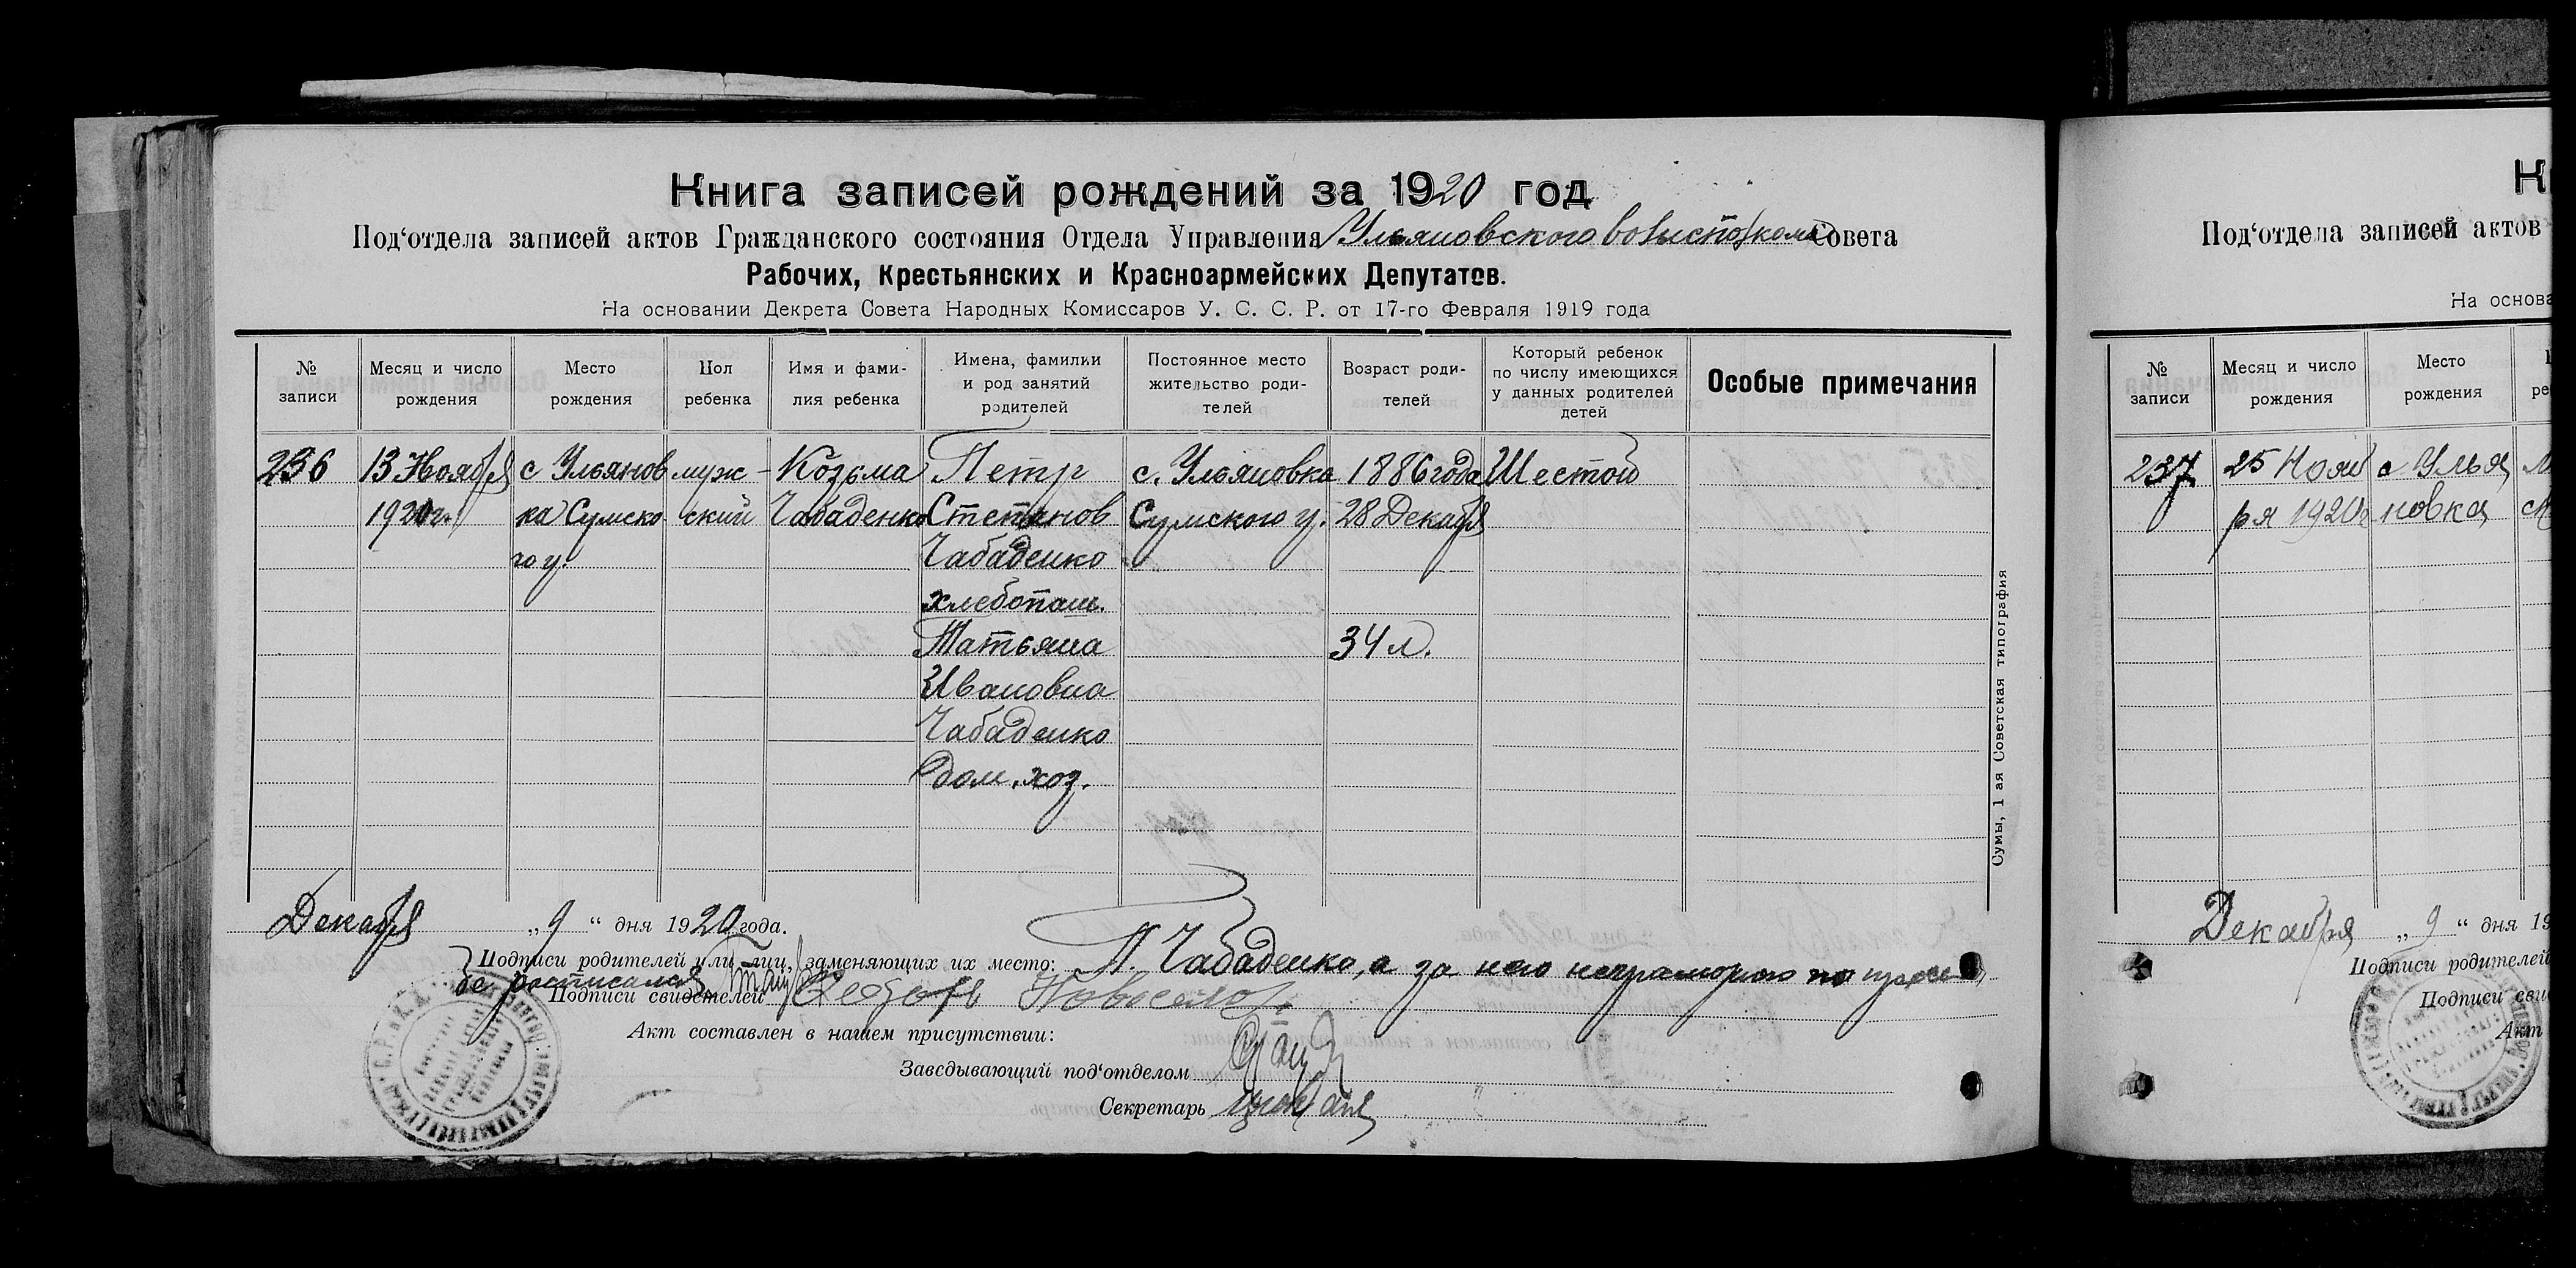 Книга записей рождений за 1920 год
Под'отдела записей актов Гражданского состояния Отдела Управления Ульяновского волисполкома Совета
Рабочих, Крестьянских и Красноармейских Депутатов.
На основании Декрета Совета Народных Комиссаров У. С. С. Р. от 17-го Февраля 1919 года
№ записи
Месяц и число рождения
Место рождения
Пол ребенка
Имя и фамилия ребенка
Имена, фамилии и род занятий родителей
Постоянное место жительство родителей
Возраст родителей
Который ребенок по числу имеющихся у данных родителей детей
Особые примечания
236 13 Ноября с Ульянов муж- Козьма Петр с. Ульяновка 1886 года Шестой
1920 г. ка Сумско ский Чабаденко Степанов Сумского у. 28 Декабря
го у. Чабаденко
хлебопаш.
Татьяна 34 л.
Ивановна
Чабаденко
Дом. хоз.
Сумы, 1 ая Советская типография
Декабря „9“ дня 1920 года.
Подписи родителей или лиц, заменяющих их место: П. Чабаденко, а за него неграмотного по прозь
бе росписался
Подписи свидетелей Федоръ
Акт составлен в нашем присутствии:
Заведывающий под'отделом
Секретарь
К
Под'отдела записей актов
На основа
№ записи
Месяц и число рождения
Место рождения
ре
237 25 Нояб с Улья
ря 1920 г новка
Декабря „9“ дня 19
Подписи родителей
Подписи сви
Акт